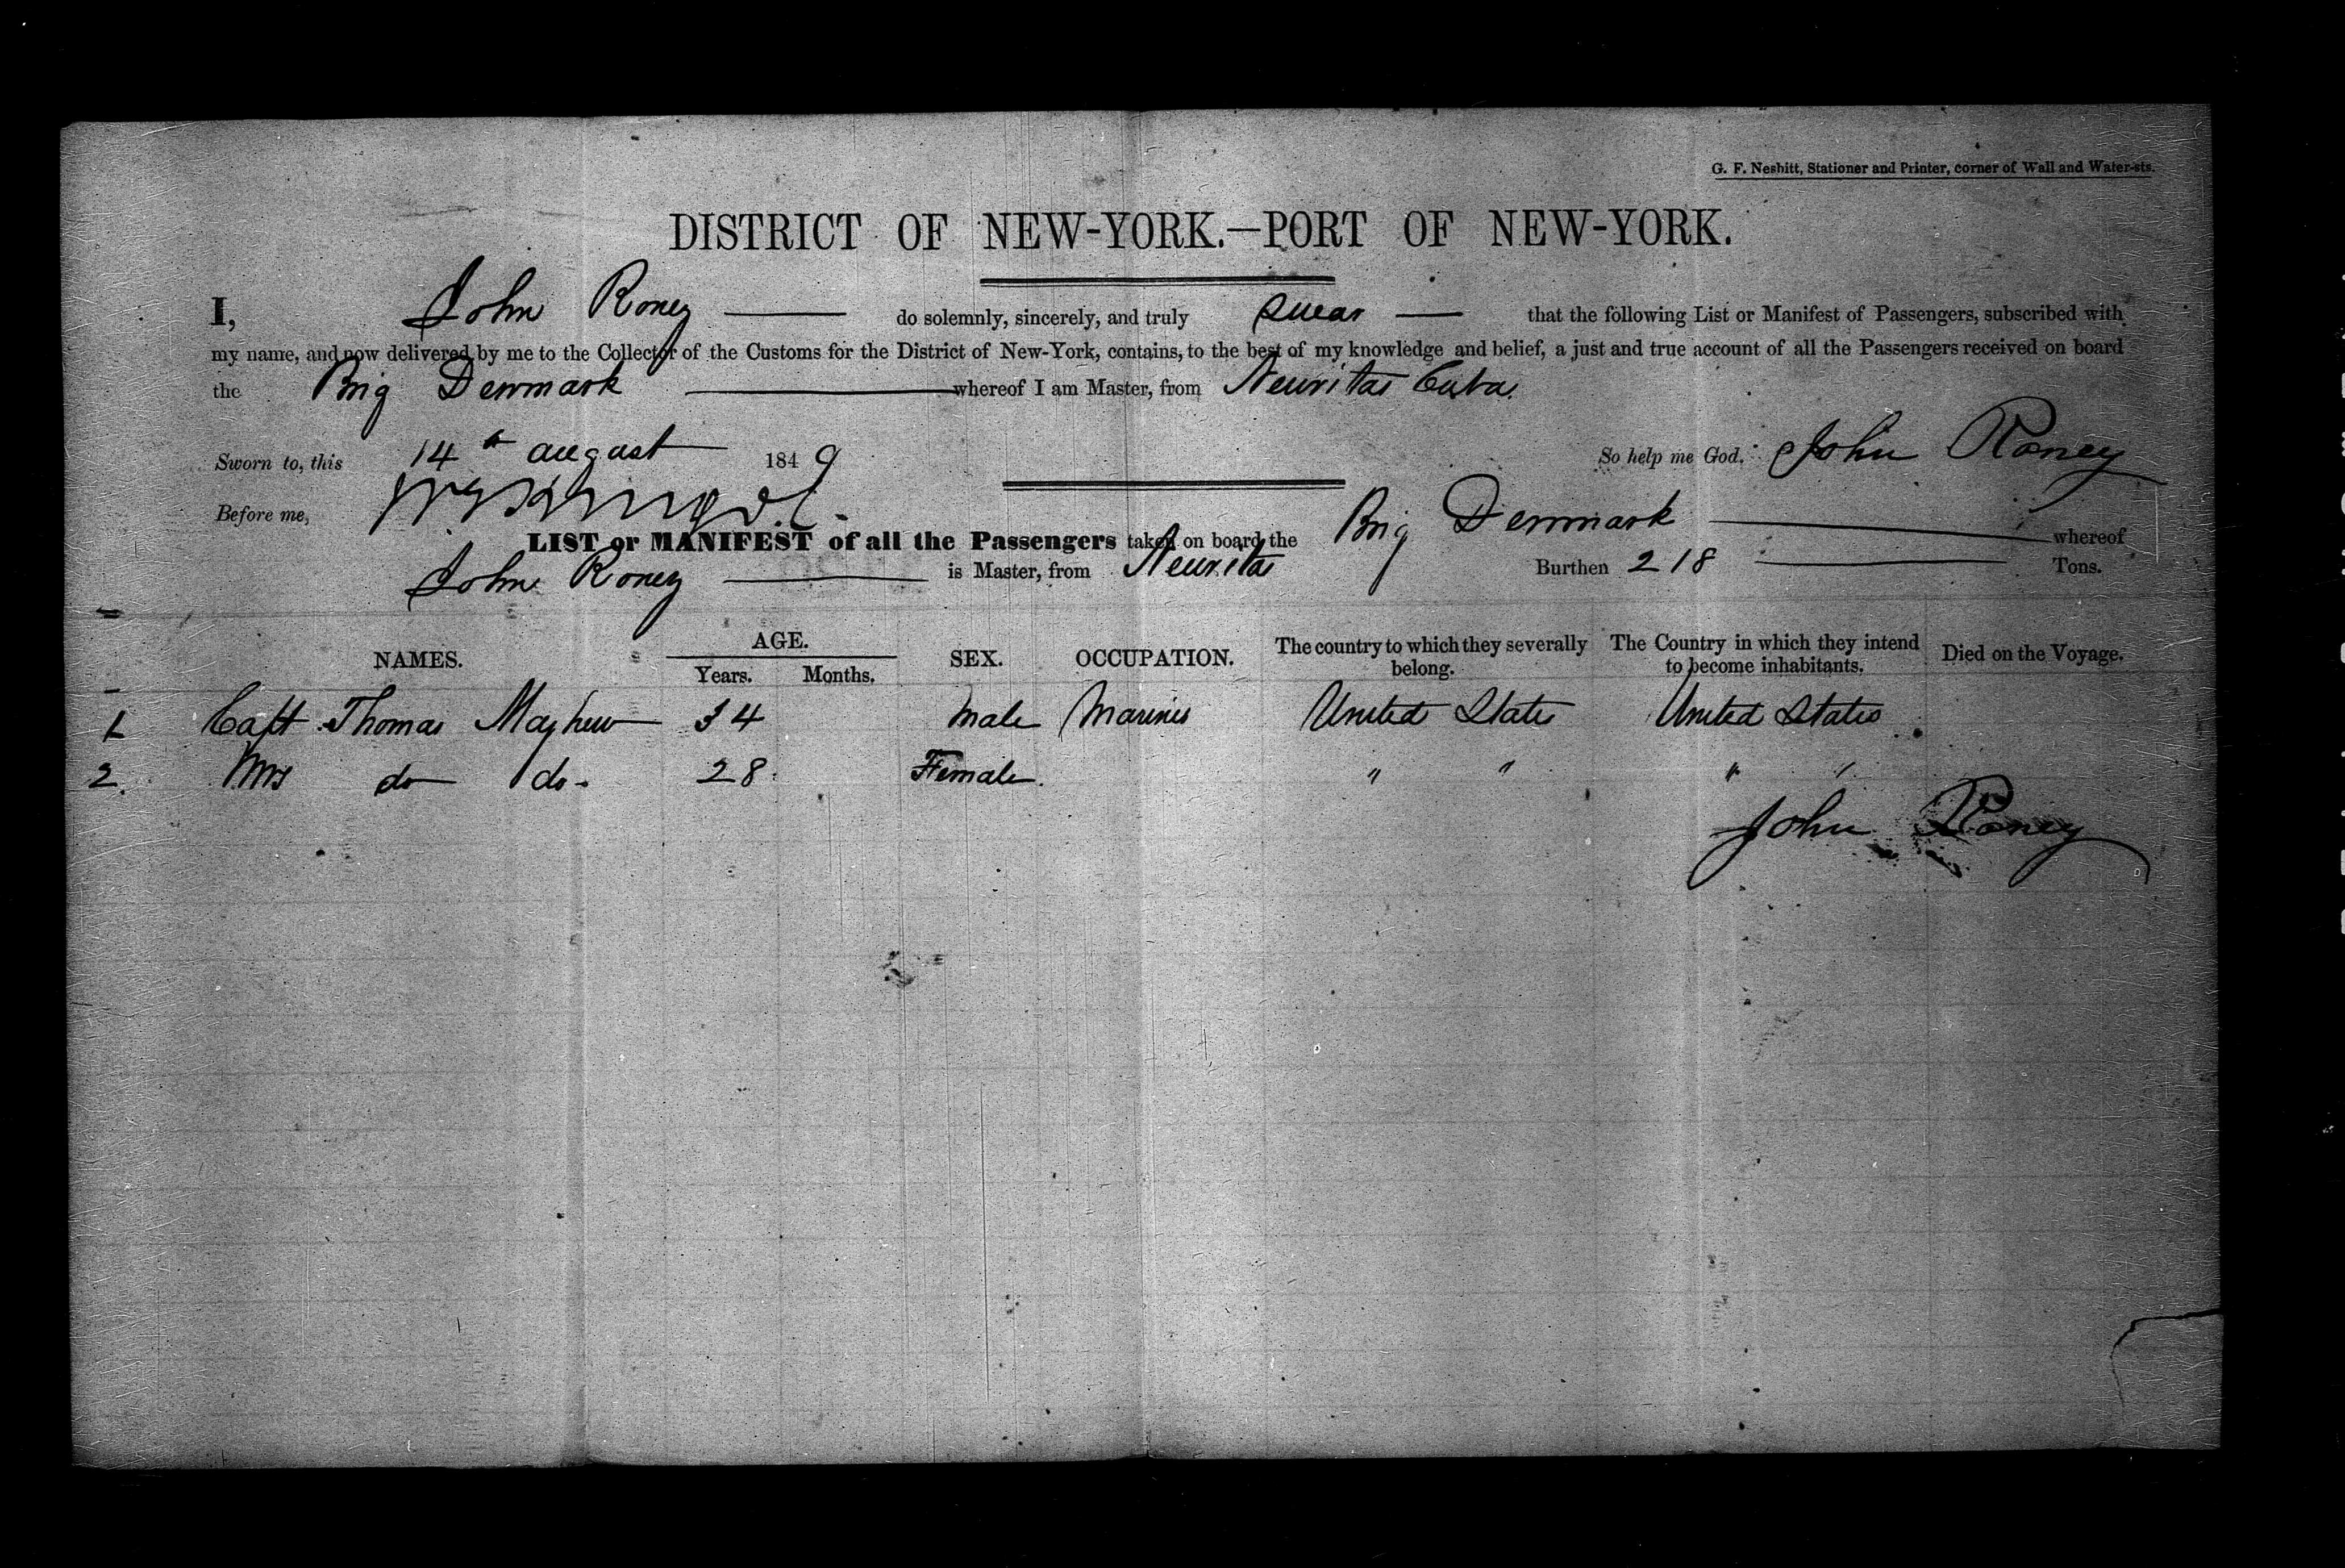 G. F. Nesbitt, Stationer and Printer, corner of Wall and Water-sts.
DISTRICT OF NEW-YORK.—PORT OF NEW-YORK.
I, John Roney —— do solemnly, sincerely, and truly swear — that the following List or Manifest of Passengers, subscribed with
my name, and now delivered by me to the Collector of the Customs for the District of New-York, contains, to the best of my knowledge and belief, a just and true account of all the Passengers received on board
the Brig Denmark —— whereof I am Master, from Neuvitas Cuba.
Sworn to, this 14th august 1849 So help me God. John Roney
Before me,
LIST or MANIFEST of all the Passengers taken on board the Brig Denmark —— whereof
John Roney —— is Master, from Neuvitas Burthen 218 —— Tons.
NAMES. AGE. Years. Months. SEX. OCCUPATION. The country to which they severally belong. The Country in which they intend to become inhabitants. Died on the Voyage.
1 Capt Thomas Mayhew — 34 Male Mariner United States United States
2. Mrs do do 28 Female " " " "
John Roney